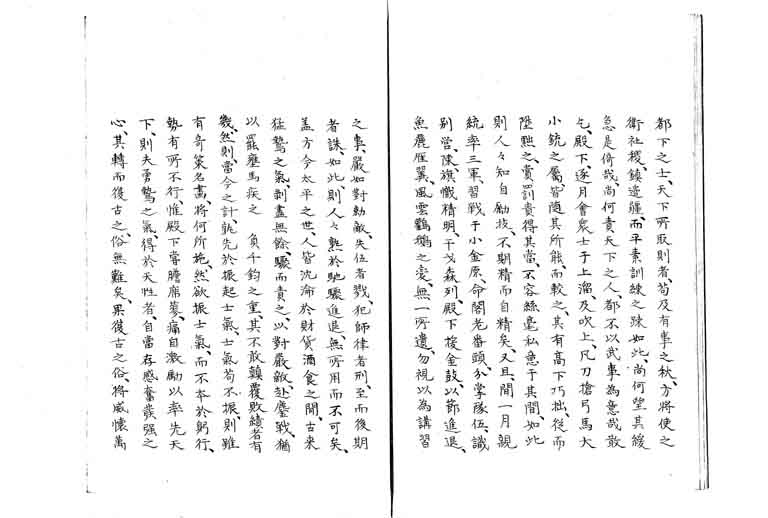 都下之士、天下所取則者、苟及有事之秋、方將使之
衛社稷、鎮邊疆、而平素訓練之疎如此、尚何望其緩
急是倚哉、尚何責天下之人、都不以武事為意哉、敢
乞、殿下、逐月會衆士于上溜、及吹上、凡刀槍弓馬大
小銃之屬、皆隨其所能而較之、其有高下巧拙、從而
陞黜之、賞罰責得其當、不容絲毫私急干其間、如此
則人々知自勵技、不期精而自精矣、又且間一月、親
統率三軍、習戰于小金原、命閣老番頭、分掌隊伍、識
別營陳、旗幟精明、干戈森列、殿下援金鼓、以節進退、
魚麗雁翼、風雲鸛鵝之變、無一所遺、勿視以為講習
之事、嚴如對勍敵、失伍者戮、犯師律者刑、至而後期
者誅、如此、則人々熟於馳驅進退、無所用而不可矣、
盖方今太平之世、人皆沈淪於財貨酒食之間、古来
猛鷙之氣、剥盡無餘、驟而責之、以對嚴敵、赴鏖戰、猶
以罷癃馬疾之 負千鈞之重、其不敢顛覆敗績者有
幾、然則當今之計、孰先於振起士氣、士氣苟不振、則雖
有奇策名畫、將何所施、然欲振士氣、而不本於躬行、
勢有所不行、惟殿下嘗膽席蓼、痛自激勵、以率先天
下、則夫勇鷙之氣得於天性者、自當存感奮發强之
心、其轉而復古之俗、無難矣、果復古之俗、將威懷萬